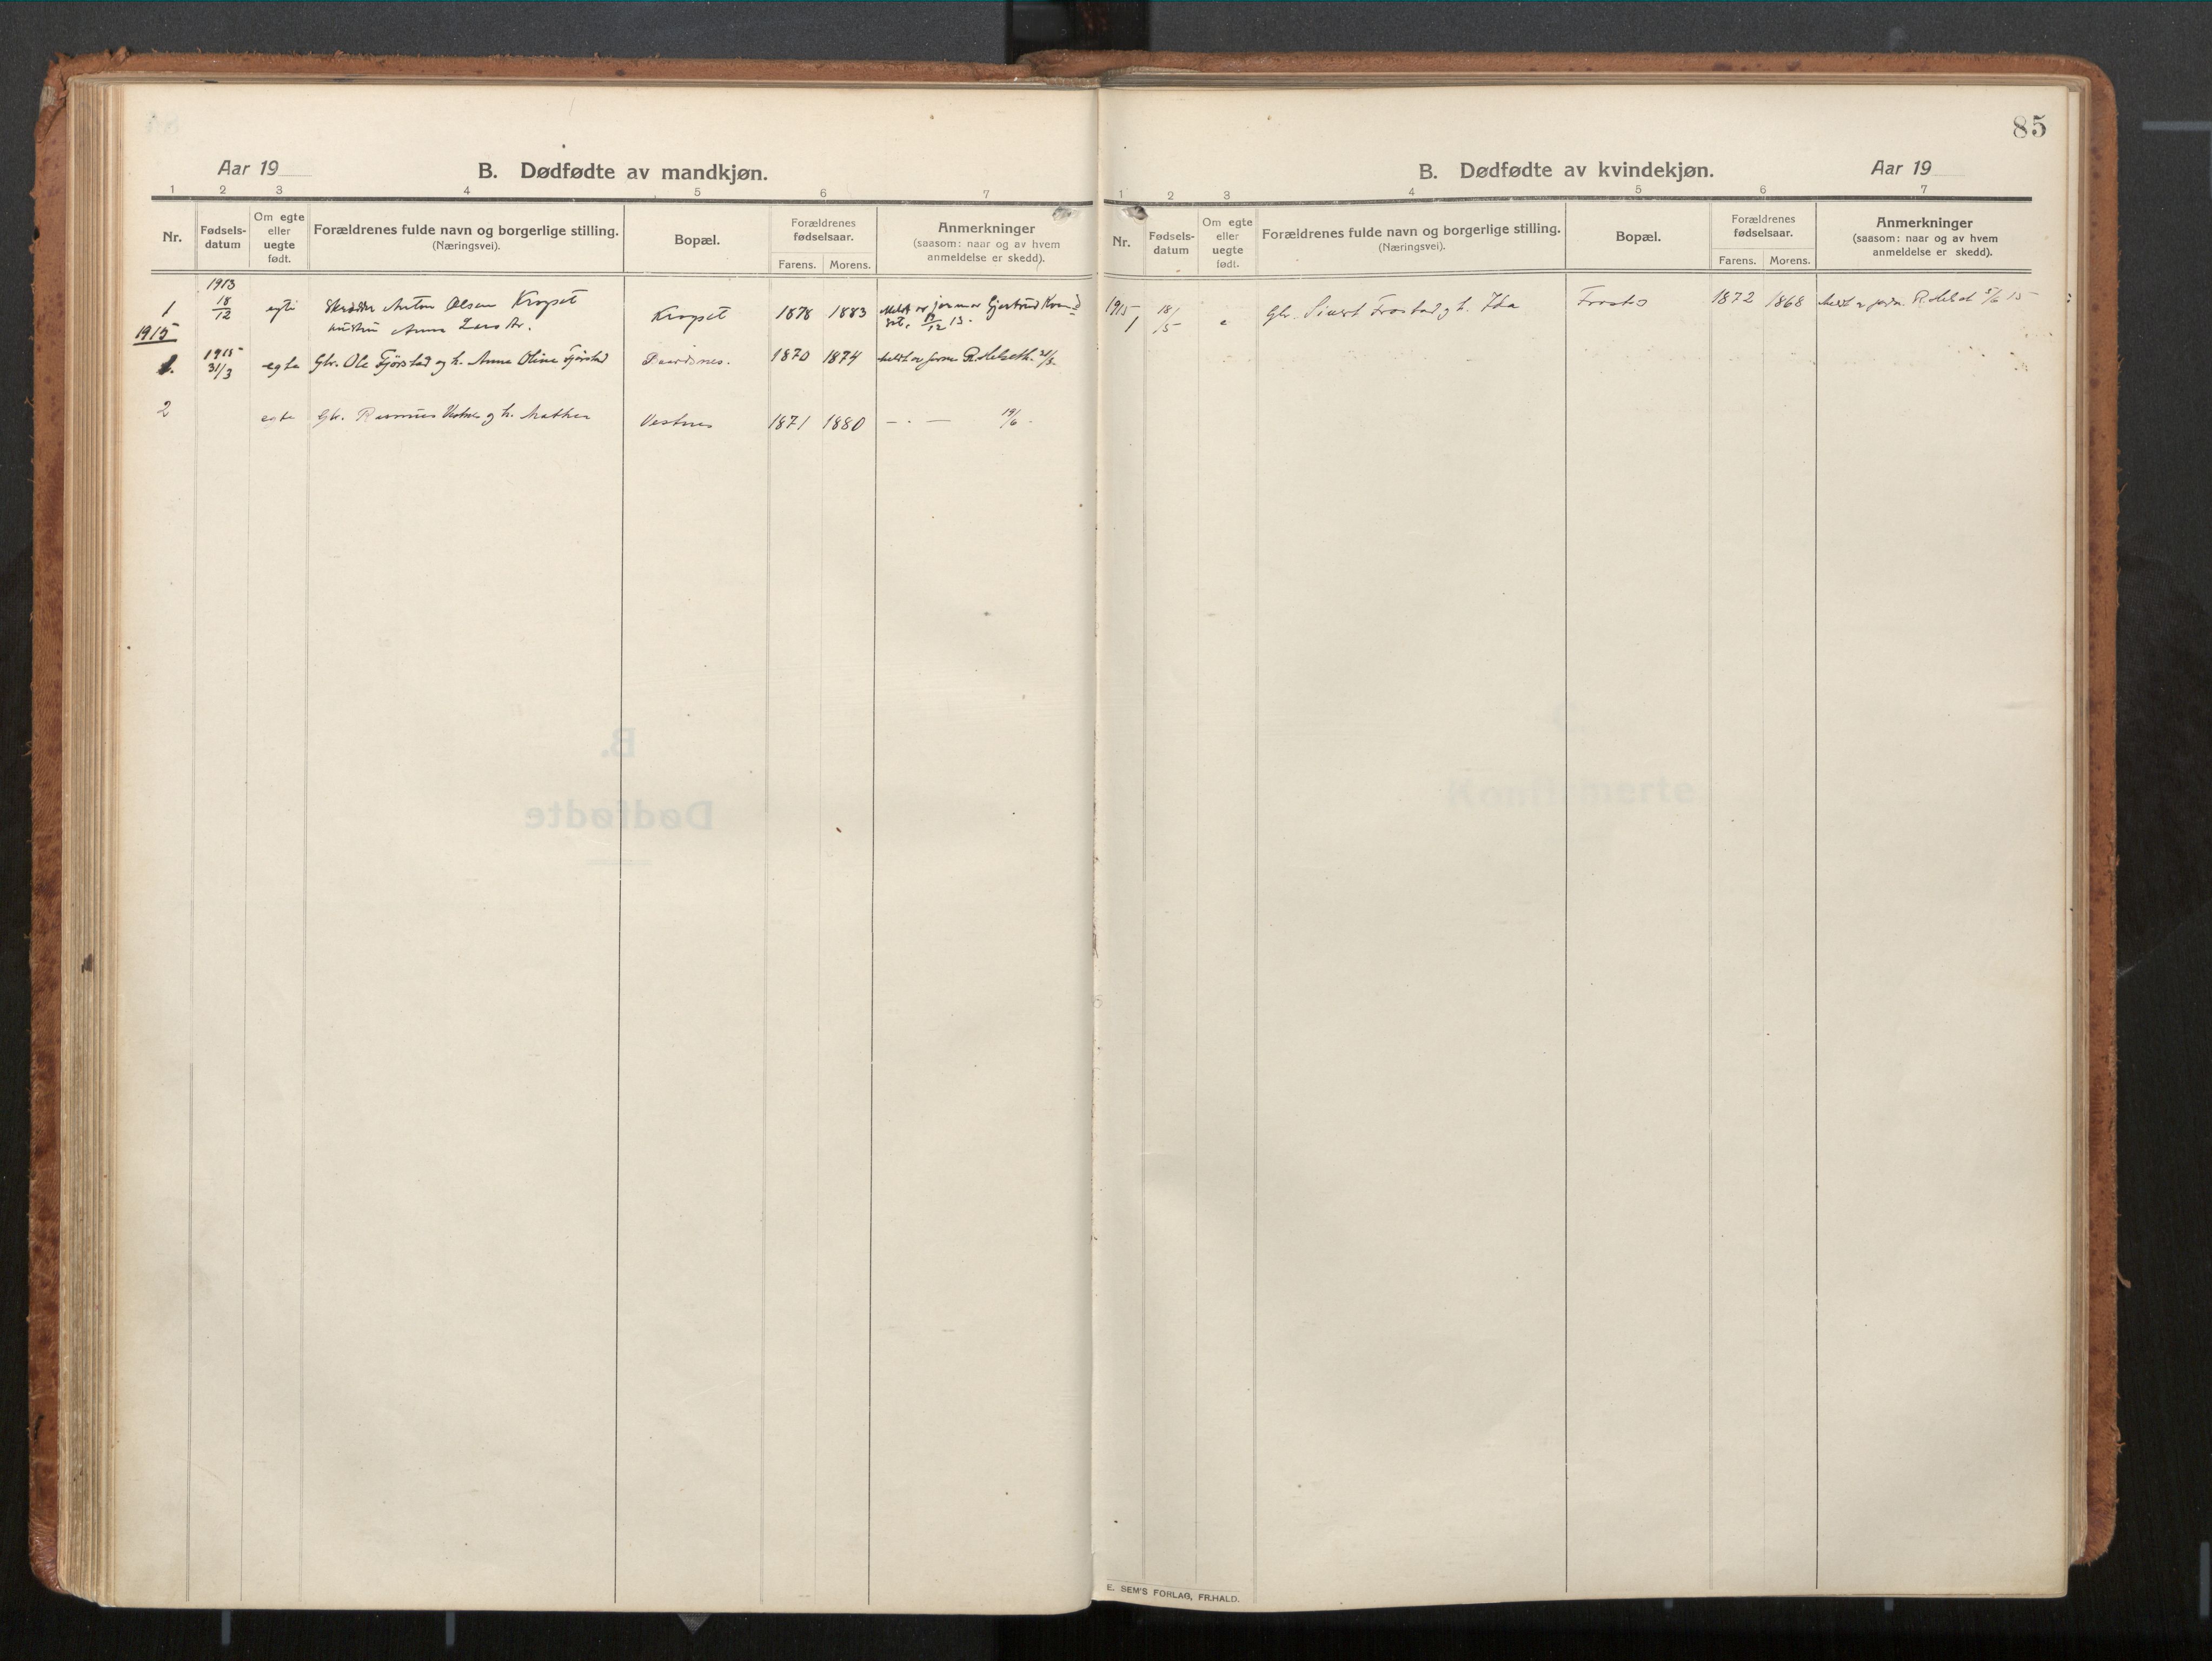 85
Aar 19
B. Dødfødte av mandkjøn.
1 2 3 4 5 6 7
Nr.
Fødsels-
datum
Om egte
eller
uegte
født.
Forældrenes fulde navn og borgerlige stilling.
(Næringsvei).
Bopæl.
Forældrenes
fødselsaar.
Farens. Morens.
Anmerkninger
(saasom: naar og av hvem
anmeldelse er skedd).
1913
1 18/12 egte Skrædder Anton Olsen Kropset Kropset 1878 1883 Meldt av jormor Gjertrud
hustru Anna 12 13.
1915
1. 1915 31/3 egte Gbr. Ole Fjørstad og h. Anna Oline Fjørstad 1870 1874 meldt av jorm. R. Helseth. 31/3
2 egte Gbr. Rasmus Vestnes og h. Mathea Vestnes 1871 1880 — . — 19/6.
B. Dødfødte av kvindekjøn.
Aar 19
1 2 3 4 5 6 7
Nr.
Fødsels-
datum
Om egte
eller
uegte
født.
Forældrenes fulde navn og borgerlige stilling.
(Næringsvei).
Bopæl.
Forældrenes
fødselsaar.
Farens. Morens.
Anmerkninger
(saasom: naar og av hvem
anmeldelse er skedd).
1915 18/5 e Gbr. Sivert Frostad og h. Ida 1872 1868 meldt av jordm. R. 15
1
B.
Dødfødte
Konfirmerte
E. SEM'S FORLAG, FR.HALD.